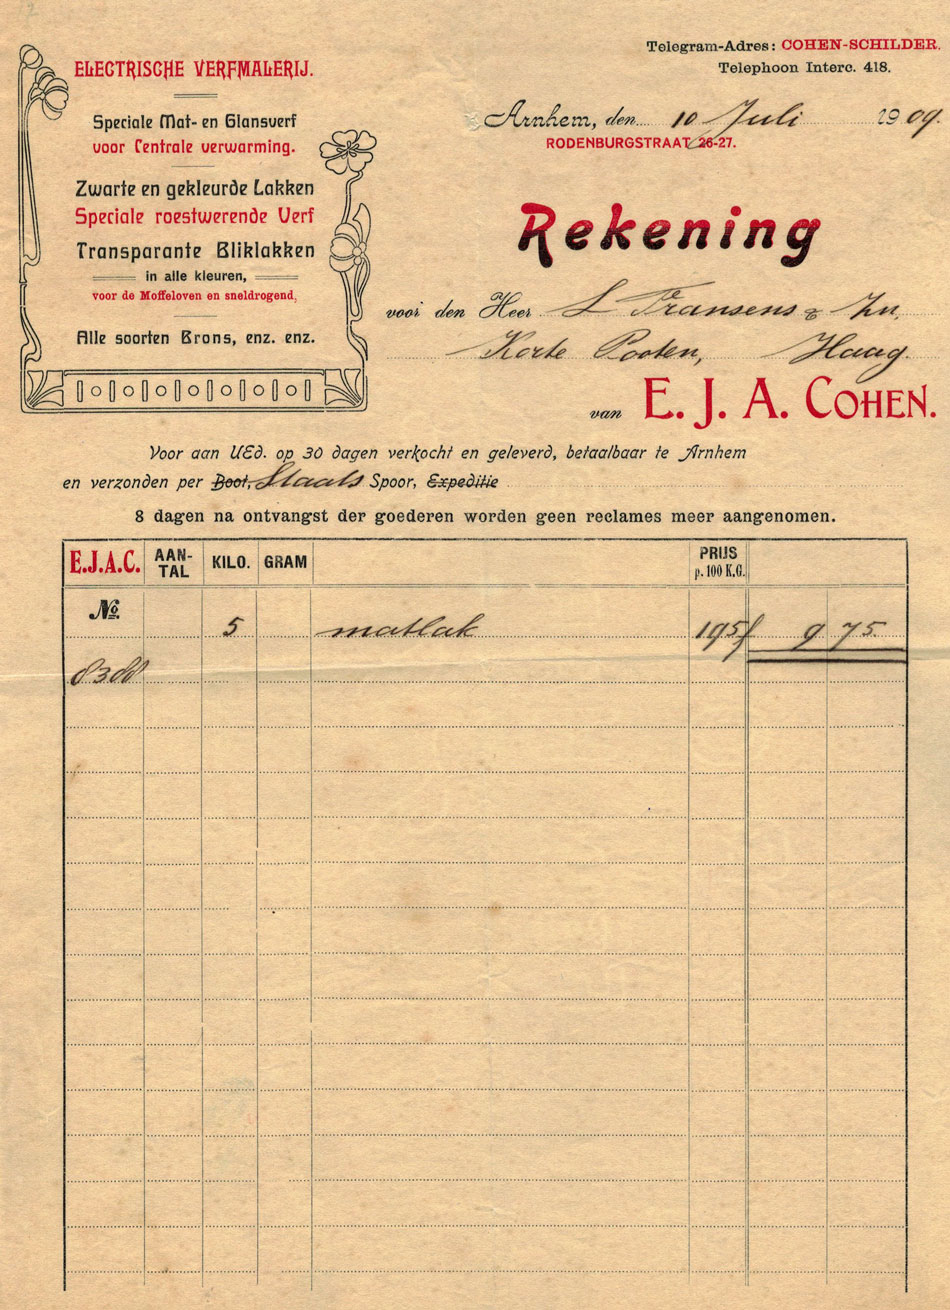 ELECTRISCHE VERFMALERIJ.
Speciale Mat- en Glansverf
voor Centrale verwarming.
Zwarte en gekleurde Lakken
Speciale roestwerende Verf
Transparante Bliklakken
in alle kleuren,
voor de Moffeloven en sneldrogend,
Alle soorten Brons, enz. enz.
Telegram-Adres: COHEN-SCHILDER.
Telephoon Interc. 418.
Arnhem, den 10 Juli 1909.
RODENBURGSTRAAT 26-27.
Rekening
voor den Heer L Fransens & Zn.
Korte Pooten, Haag.
van E. J. A. COHEN.
Voor aan UEd. op 30 dagen verkocht en geleverd, betaalbaar te Arnhem
en verzonden per Boot, Staats Spoor, Expeditie
8 dagen na ontvangst der goederen worden geen reclames meer aangenomen.
E.J.A.C. AAN-TAL KILO. GRAM PRIJS p. 100 K.G.
No.
5 matlak 195 f 9 75